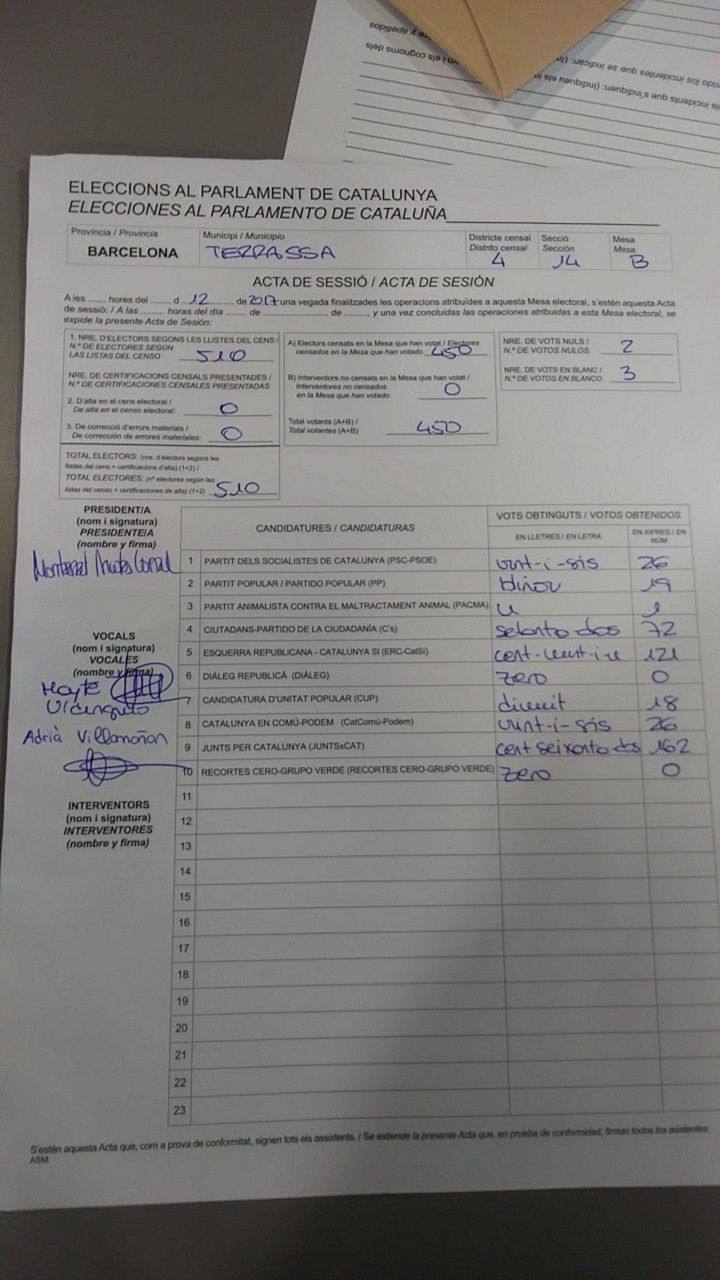 ELECCIONS AL PARLAMENT DE CATALUNYA
ELECCIONES AL PARLAMENTO DE CATALUÑA
Província / Provincia
BARCELONA
Municipi / Municipio
TERRASSA
Districte censal
Distrito censal
4
Secció
Sección
14
Mesa
Mesa
B
ACTA DE SESSIÓ / ACTA DE SESIÓN
A les ........ hores del ........ d ..12.......... de 2017 una vegada finalitzades les operacions atribuïdes a aquesta Mesa electoral, s'estén aquesta Acta
de sessió: / A las ........ horas del día ....... de ........................ de ........, y una vez concluidas las operaciones atribuidas a esta Mesa electoral, se
expide la presente Acta de Sesión:
1. NRE. D'ELECTORS SEGONS LES LLISTES DEL CENS /
N.º DE ELECTORES SEGÚN
LAS LISTAS DEL CENSO 510
NRE. DE CERTIFICACIONS CENSALS PRESENTADES /
N.º DE CERTIFICACIONES CENSALES PRESENTADAS
2. D'alta en el cens electoral /
De alta en el censo electoral: 0
3. De correcció d'errors materials /
De corrección de errores materiales: 0
TOTAL ELECTORS: (nre. d'electors segons les
llistes del cens + certificacions d'alta) (1+2) /
TOTAL ELECTORES: (nº electores según las
listas del censo + certificaciones de alta) (1+2) 510
A) Electors censats en la Mesa que han votat / Electores
censados en la Mesa que han votado 450
B) Interventors no censats en la Mesa que han votat /
Interventores no censados
en la Mesa que han votado 0
Total votants (A+B) /
Total votantes (A+B) 450
NRE. DE VOTS NULS /
N.º DE VOTOS NULOS 2
NRE. DE VOTS EN BLANC /
N.º DE VOTOS EN BLANCO 3
PRESIDENT/A
(nom i signatura)
PRESIDENTE/A
(nombre y firma)
VOCALS
(nom i signatura)
VOCALES
(nombre y firma)
Adrià Villamañan
INTERVENTORS
(nom i signatura)
INTERVENTORES
(nombre y firma)
CANDIDATURES / CANDIDATURAS
VOTS OBTINGUTS / VOTOS OBTENIDOS
EN LLETRES / EN LETRA
EN XIFRES / EN NÚM.
1 PARTIT DELS SOCIALISTES DE CATALUNYA (PSC-PSOE) vint-i-sis 26
2 PARTIT POPULAR / PARTIDO POPULAR (PP) dinou 19
3 PARTIT ANIMALISTA CONTRA EL MALTRACTAMENT ANIMAL (PACMA) u 1
4 CIUTADANS-PARTIDO DE LA CIUDADANÍA (C's) setanta dos 72
5 ESQUERRA REPUBLICANA - CATALUNYA SI (ERC-CatSí) cent-vint-i-u 121
6 DIÀLEG REPUBLICÀ (DIÀLEG) zero 0
7 CANDIDATURA D'UNITAT POPULAR (CUP) divuit 18
8 CATALUNYA EN COMÚ-PODEM (CatComú-Podem) vint-i-sis 26
9 JUNTS PER CATALUNYA (JUNTSxCAT) cent seixanta dos 162
10 RECORTES CERO-GRUPO VERDE (RECORTES CERO-GRUPO VERDE) zero 0
11
12
13
14
15
16
17
18
19
20
21
22
23
S'estén aquesta Acta que, com a prova de conformitat, signen tots els assistents. / Se extiende la presente Acta que, en prueba de conformidad, firman todos los asistentes.
ASM